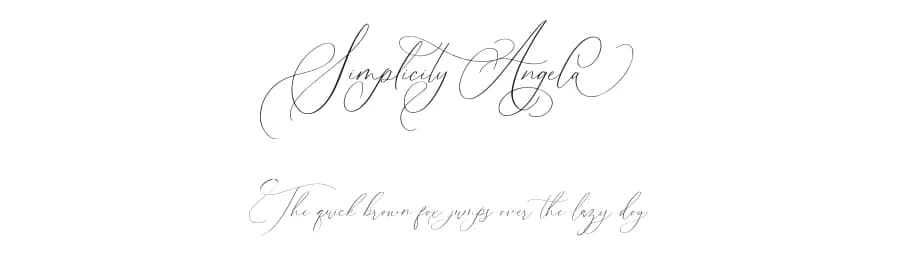 Simplicity Angela
The quick brown fox jumps over the lazy dog